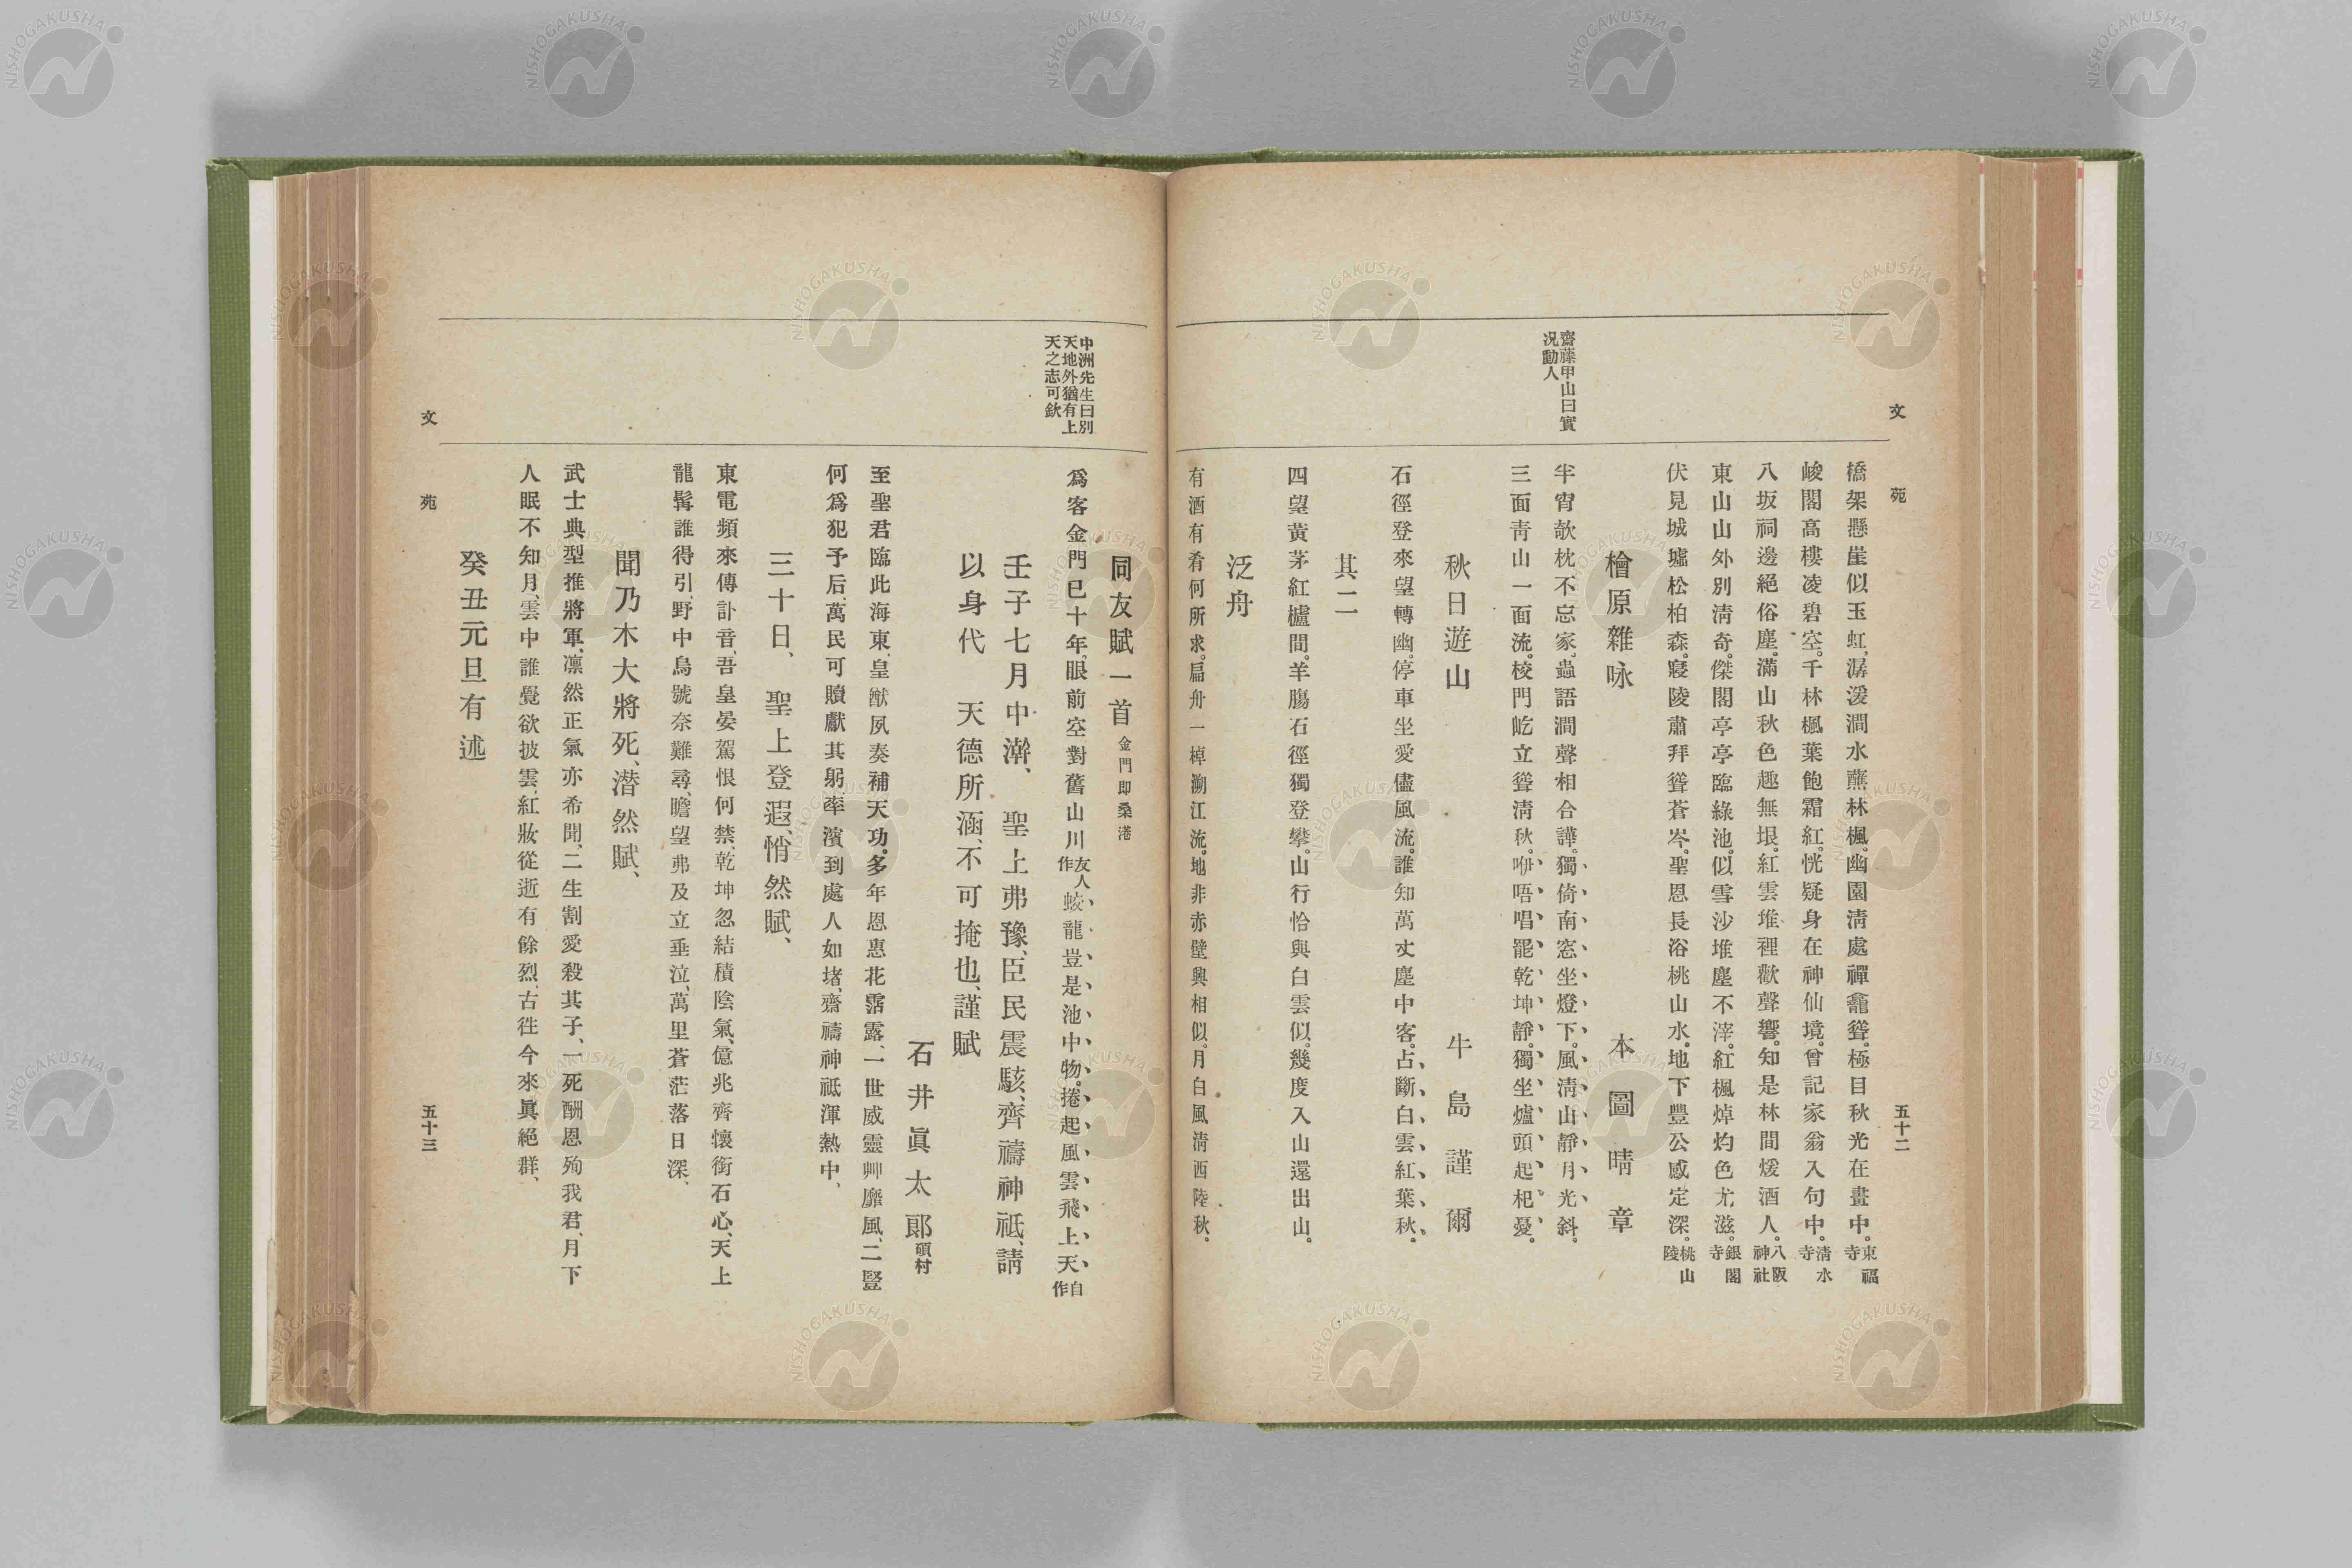 文苑
五十二
橋架懸崖似玉虹、潺湲澗水蘸林楓。幽園淸處禪龕聳。極目秋光在畫中。東福寺
峻閣高樓凌碧空。千林楓葉飽霜紅。恍疑身在神仙境。曾記家翁入句中。淸水寺
八坂祠邊絕俗塵。滿山秋色趣無垠。紅雲堆裡歡聲響。知是林間煖酒人。八阪神社
東山山外別淸奇。傑閣亭亭臨綠池。似雪沙堆塵不滓。紅楓焯灼色尤滋。銀閣寺
伏見城墟松柏森。寢陵肅拜聳蒼岑。聖恩長浴桃山水。地下豐公感定深。桃山陵
檜原雜咏
本圖晴章
齋藤甲山曰實
况動人
半宵欹枕不忘家、蟲語澗聲相合譁。獨倚南窓坐燈下。風淸山靜月光斜。
三面靑山一面流。棱門屹立聳淸秋。咿唔唱罷乾坤靜。獨坐爐頭起杞憂。
秋日遊山
牛島謹爾
石徑登來望轉幽。停車坐愛儘風流。誰知萬丈塵中客。占斷白雲紅葉秋。
其二
四望黃茅紅櫨間。羊膓石徑獨登攀。山行恰與白雲似。幾度入山還出山。
泛舟
有酒有肴何所求。扁舟一棹溯江流。地非赤壁興相似。月白風淸西陸秋。
同友賦一首 金門即桑港
中洲先生曰別
天地外猶有上
天之志可欽
爲客金門已十年、眼前空對舊山川友人作蛟龍豈是池中物。捲起風雲飛上天自作
壬子七月中澣、聖上弗豫、臣民震駭、齊禱神祇、請
以身代天德所涵、不可掩也、謹賦
石井眞太郞碩村
至聖君臨此海東、皇猷夙奏補天功。多年恩惠花霑露、一世威靈艸靡風、二豎
何爲犯予后、萬民可贖獻其躬、率濱到處人如堵、齋禱神祇渾熱中、
三十日、聖上登遐、悄然賦、
東電頻來傳訃音、吾皇晏駕恨何禁、乾坤忽結積陰氣、億兆齊懷銜石心、天上
龍髯誰得引、野中烏號奈難尋、瞻望弗及立垂泣、萬里蒼茫落日深、
聞乃木大將死、潜然賦、
武士典型推將軍、凛然正氣亦希聞、二生割愛殺其子、一死酬恩殉我君、月下
人眠不知月、雲中誰覺欲披雲、紅妝從逝有餘烈、古徃今來眞絕群、
癸丑元旦有述
文苑
五十三